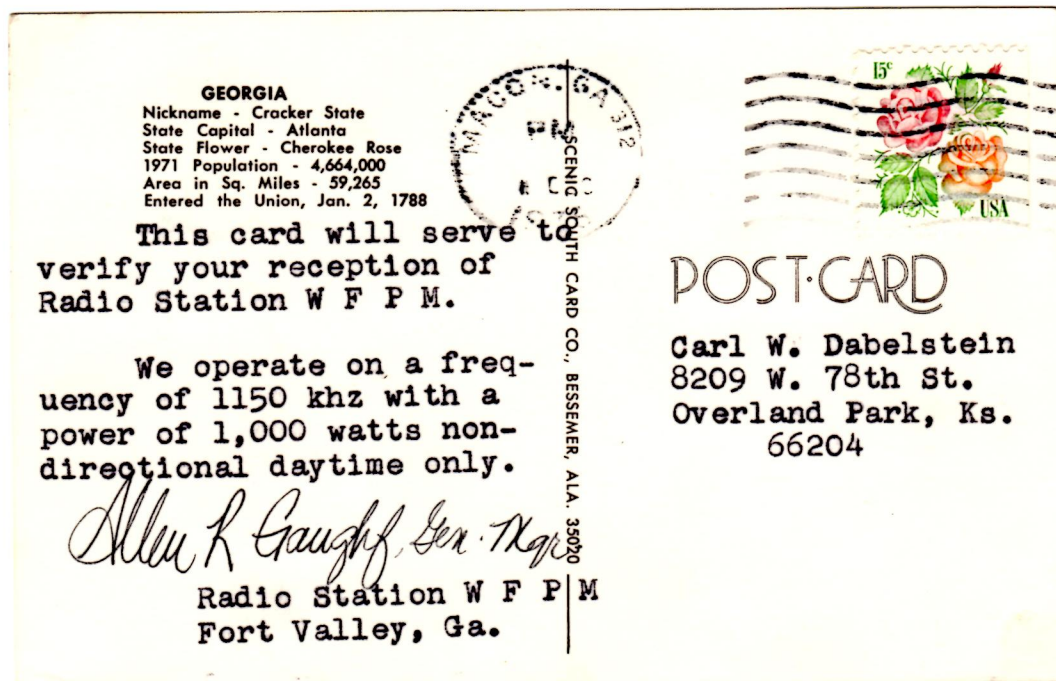 GEORGIA
Nickname - Cracker State
State Capital - Atlanta
State Flower - Cherokee Rose
1971 Population - 4,664,000
Area in Sq. Miles - 59,265
Entered the Union, Jan. 2, 1788
This card will serve to
verify your reception of
Radio Station W F P M.
We operate on a freq-
uency of 1150 khz with a
power of 1,000 watts non-
directional daytime only.
Allen R Gaughf, Gen. Mgr.
Radio Station W F P M
Fort Valley, Ga.
MACON, GA 312
PM
DEC
SCENIC SOUTH CARD CO., BESSEMER, ALA. 35020
15c
USA
POST·CARD
Carl W. Dabelstein
8209 W. 78th St.
Overland Park, Ks.
66204